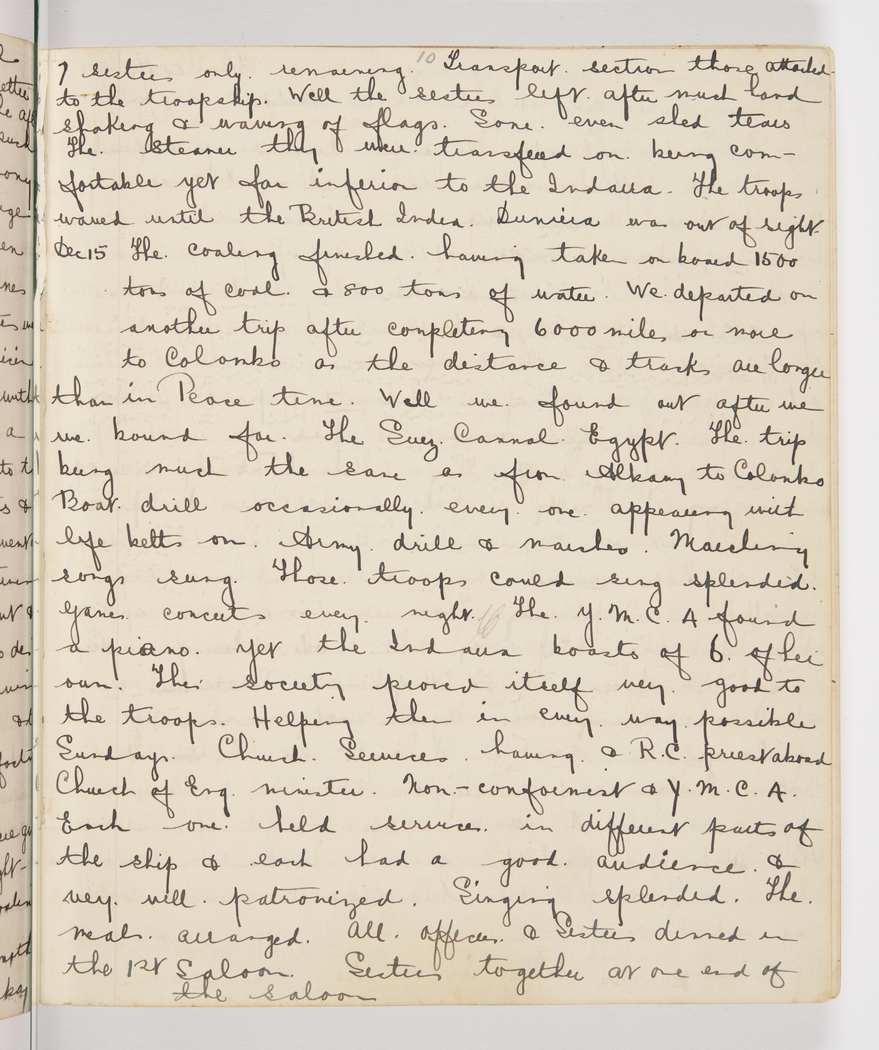 10
7 sisters only. remaining. Transport. section those attached
to the troopship. Well the sisters left. after much hand
shaking & waving of flags. Some. even shed tears
The. Steamer they were. transfered on. being com-
fortable yet far inferior to the Indarra. The troops
waved until the British India. Dunera was out of sight.
Dec 15 The. coaling finished. having taken on board 1500
tons of coal. & 800 tons of water. We. departed on
another trip after completing 6000 miles or more
to Colombo as the distance & tracks are longer
than in Peace time. Well we. found out after we
we. bound for. The Suez. Cannal. Egypt. The. trip
being much the same as from Albany to Colombo
Boat. drill occasionally. every. one. appearing with
life belts on. Army. drill & marches. Marching
songs sung. Those. troops could sing splendid.
Games. concerts every. night. The. Y.M.C.A found
a piano. yet the Indarra boasts of 6. of her
own. This society proved itself very. good to
the troops. Helping them in every. way. possible
Sundays. Church. Services. having. a R.C. priest aboard
Church of Eng. minister. Non-conformist & Y.M.C.A.
Each one. held services. in different parts of
the ship & each had a good. audience. &
very. well. patronized. Singing splendid. The.
meals. arranged. All. officers. & Sisters dinned in
the 1st Saloon. Sisters together at one end of
the Saloon